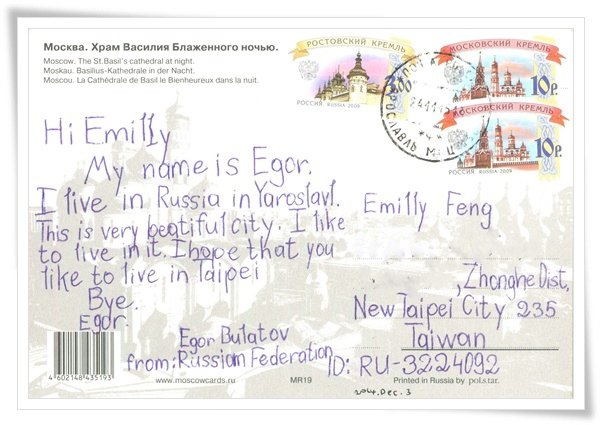 Москва. Храм Василия Блаженного ночью.
Moscow. The St.Basil's cathedral at night.
Moskau. Basilius-Kathedrale in der Nacht.
Moscou. La Cathédrale de Basil le Bienheureux dans la nuit.
РОСТОВСКИЙ КРЕМЛЬ
3.00
РОССИЯ RUSSIA 2009
МОСКОВСКИЙ КРЕМЛЬ
10р.
МОСКОВСКИЙ КРЕМЛЬ
10р.
РОССИЯ RUSSIA 2009
ЯРОСЛАВЛЬ МСЦ
Hi Emilly
My name is Egor.
I live in Russia in Yaroslavl.
This is very beatiful city. I like
to live in it. I hope that you
like to live in Taipei
Bye.
Egor.
Egor Bulatov
from: Russiam Federation
Emilly Feng
,Zhonghe Dist,
New Taipei City 235
Taiwan
ID: RU-3224092
4 602148 435193
www.moscowcards.ru
MR19
Printed in Russia by pol.s.tar.
2014.Dec.3